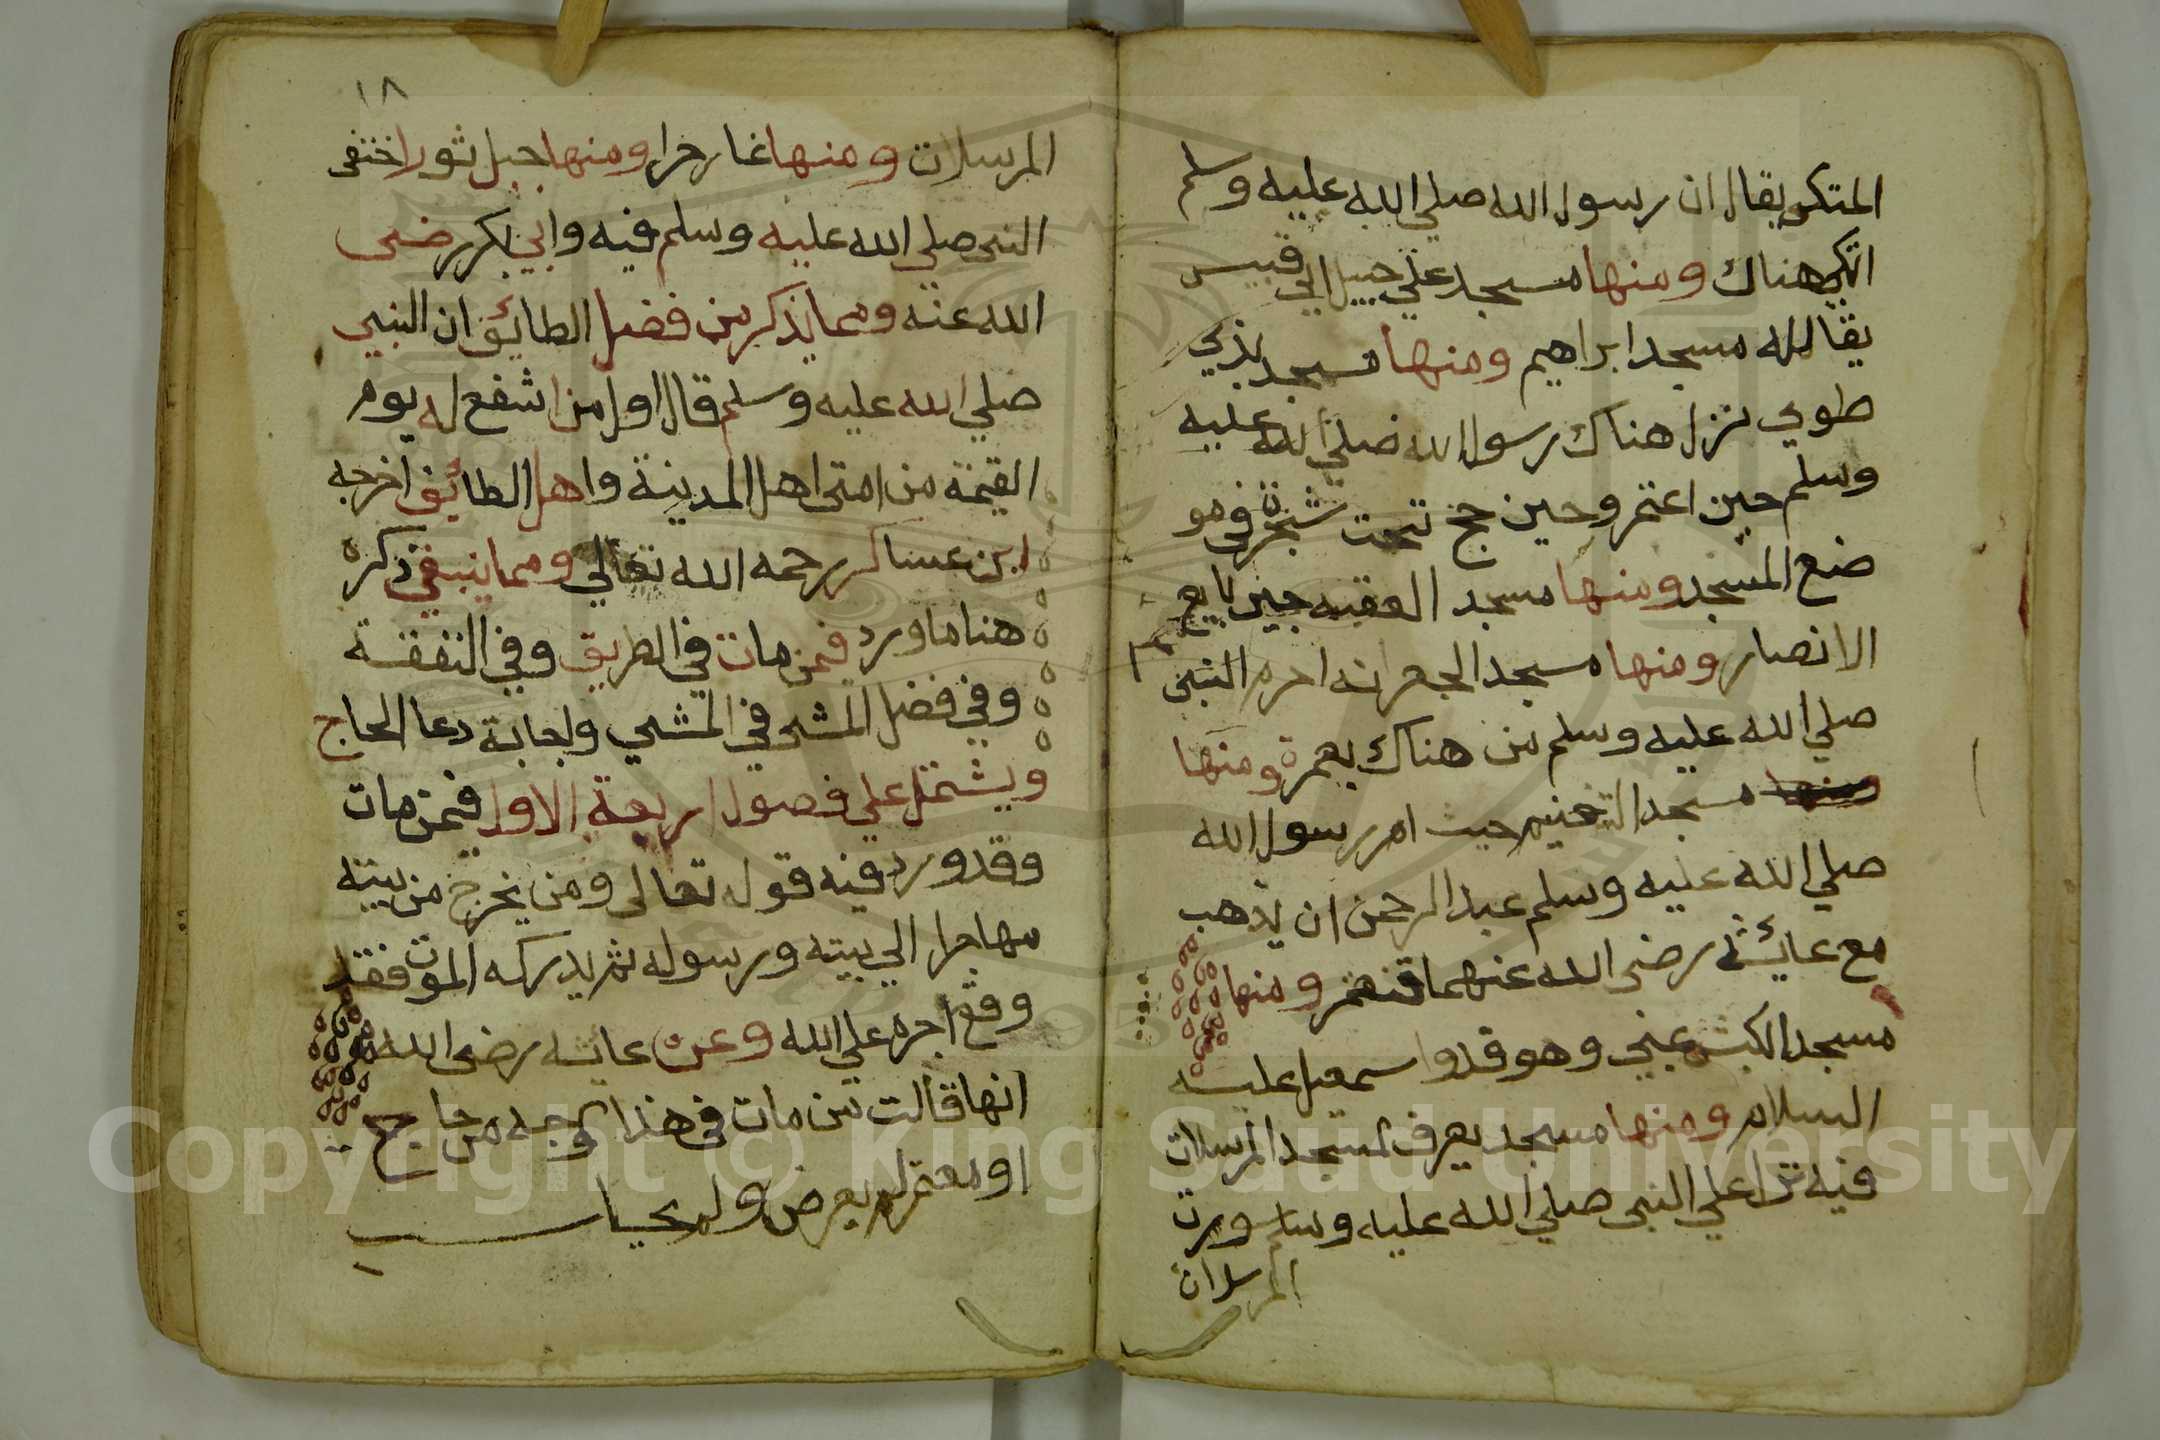 المتكى يقال ان رسول الله صلي الله عليه وسلم
اتكى هناك ومنها مسجد علي جبيل ابي قبيس
يقال له مسجد ابراهيم ومنها مسجد بذي
طوي نزل هناك رسول الله صلي الله عليه
وسلم حين اعتمر وحين حج تحت شجرة في مو
ضع المسجد ومنها مسجد العقبه حين بايع
الانصار ومنها مسجد الجعرانه احرم النبي
صلي الله عليه وسلم من هناك بعمرة ومنها
ومنها مسجد التنعيم حيث امر رسول الله
صلي الله عليه وسلم عبد الرحمن ان يذهب
مع عائشة رضى الله عنهما ومنها
مسجد الكبش بمني وهو فدوا سمعيل عليه
السلام ومنها مسجد يعرف لمسجد المرسلات
فيه نزل علي النبي صلي الله عليه وسلم سورة
المرسلات
١٨
المرسلات ومنها غار حرا ومنها جبل ثور اختفى
النبي صلي الله عليه وسلم فيه وابي بكر رضى
الله عنه ومما يذكر من فضل الطائف ان النبي
صلي الله عليه وسلم قال اول من اشفع له يوم
القيمة من امتي اهل المدينة واهل الطائف اخرجه
ابن عساكر رحمه الله تعالي ومما ينبغي ذكره
هنا ما ورد فيمن مات في الطريق وفي النفقة
وفي فضل المشي في المشي واجابة دعا الحاج
ويشتمل علي فصول اربعة الاول فيمن مات
وقد ورد فيه قوله تعالى ومن يخرج من بيته
مهاجرا الي بيته ورسوله ثم يدركه الموت فقد
وقع اجره علي الله وعن عايشه رضى الله
انها قالت من مات في هذا الوجه من حاج
او معتمر لم يعرض ولم يحاسب
Copyright © King Saud University